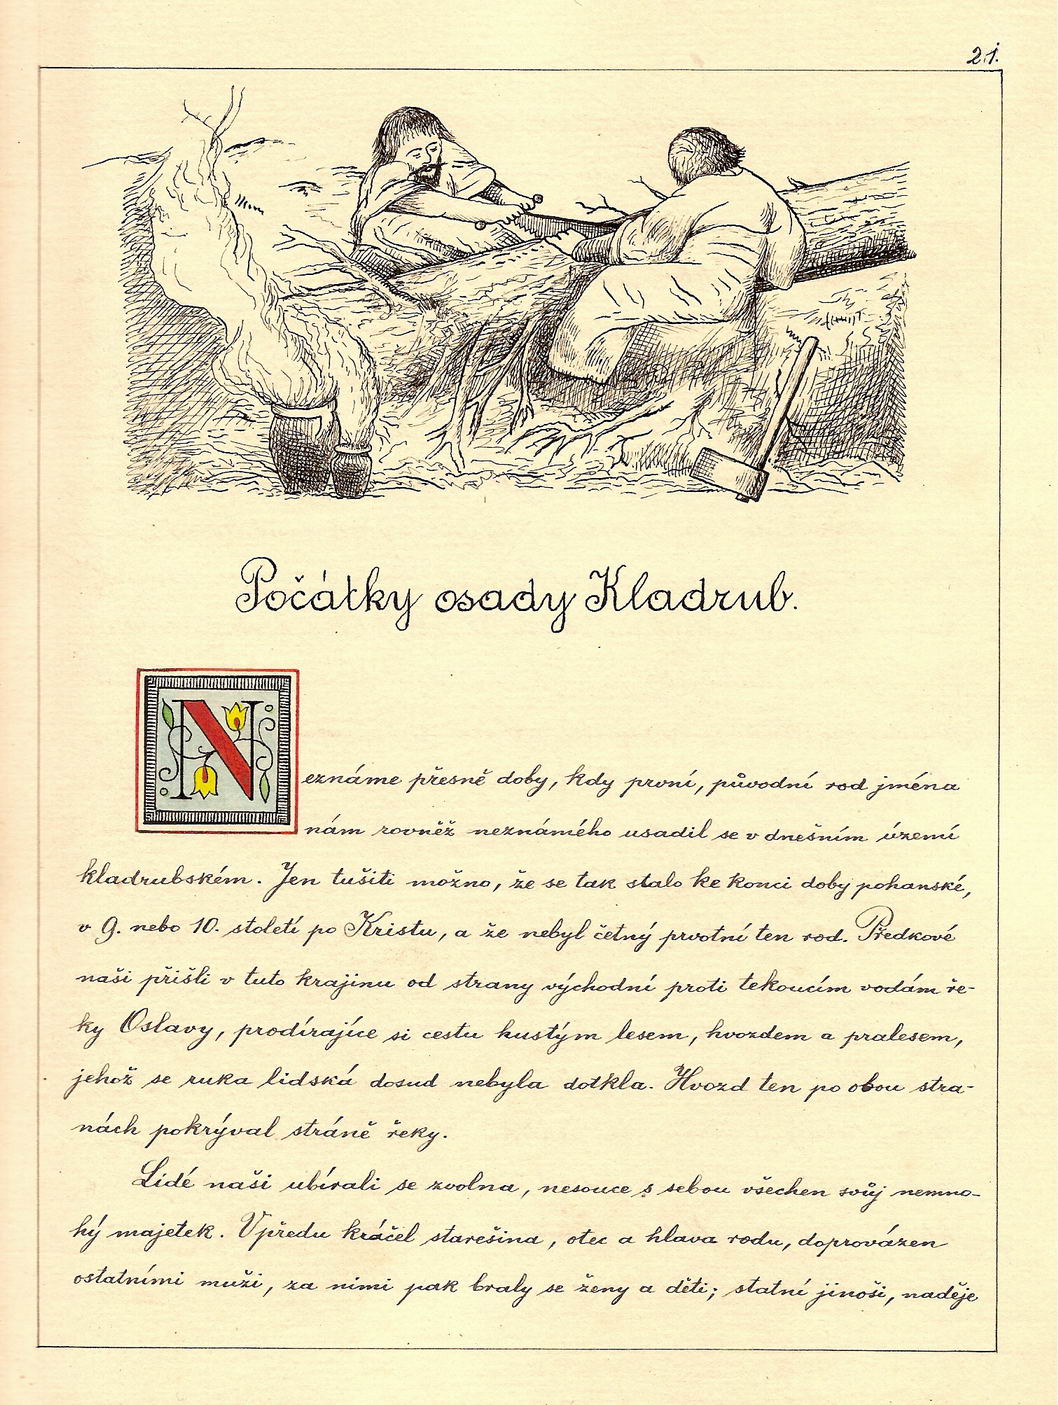 21.
Počátky osady Kladrub.
Neznáme přesně doby, kdy první, původní rod jména
nám rovněž neznámého usadil se v dnešním území
kladrubském. Jen tušiti možno, že se tak stalo ke konci doby pohanské,
v 9. nebo 10. století po Kristu, a že nebyl četný prvotní ten rod. Předkové
naši přišli v tuto krajinu od strany východní proti tekoucím vodám ře-
ky Oslavy, prodírajíce si cestu hustým lesem, hvozdem a pralesem,
jehož se ruka lidská dosud nebyla dotkla. Hvozd ten po obou stra-
nách pokrýval stráně řeky.
Lidé naši ubírali se zvolna, nesouce s sebou všechen svůj nemno-
hý majetek. Vpředu kráčel starešina, otec a hlava rodu, doprovázen
ostatními muži, za nimi pak braly se ženy a děti; statní jinoši, naděje